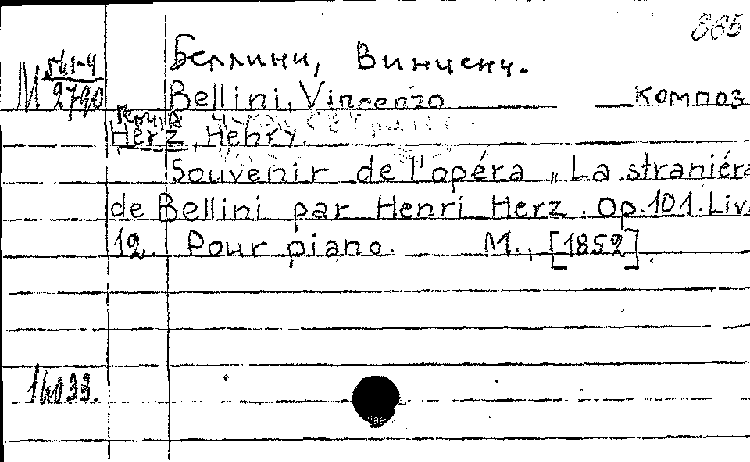 865
М 561-4
2790
Беллини, Винценц.
Bellini, Vincenzo композ
Herz, Henry.
Souvenir de l'opéra „La straniéra
de Bellini par Henri Herz. Op.101. Liv.
12. Pour piano. М., [1852].
14033.